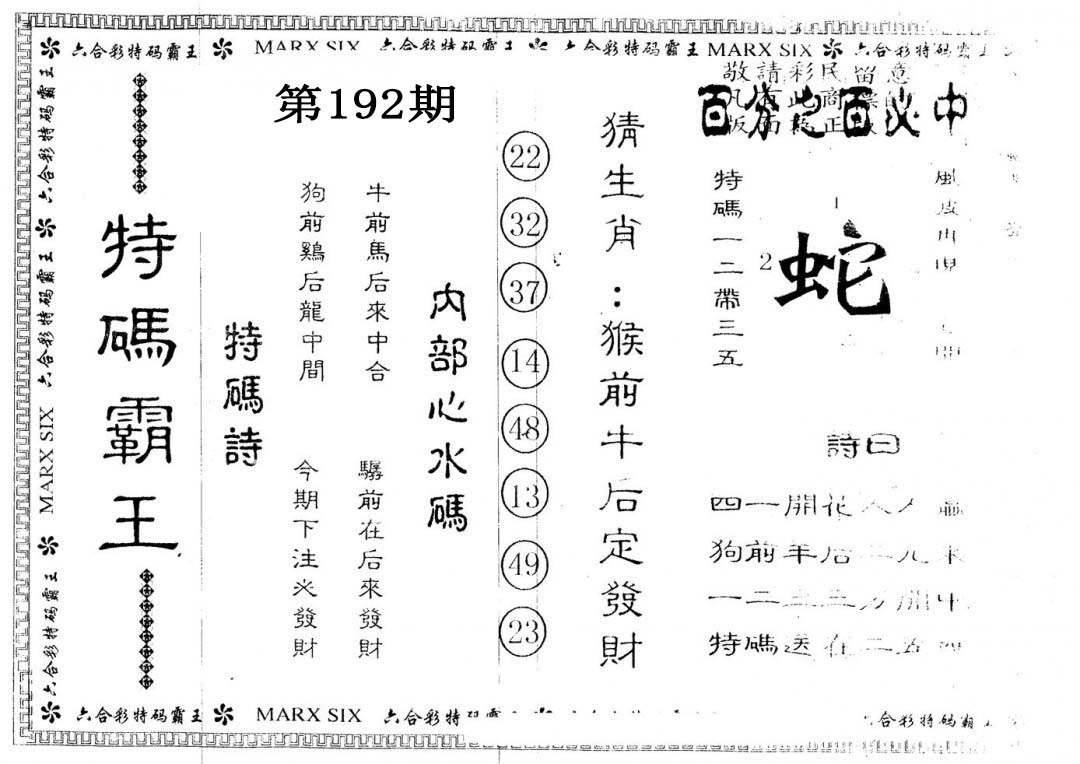 六合彩特码霸王 MARX SIX 六合彩特码霸王 六合彩特码霸王 MARX SIX 六合彩特码霸王
六合彩特码霸王
六合彩特码霸王
MARX SIX
六合彩特码霸王
特碼霸王
第192期
特碼詩
狗前鷄后龍中間
今期下注必發財
牛前馬后來中合
驏前在后來發財
内部心水碼
22
32
37
14
48
13
49
23
猜生肖：猴前牛后定發財
敬請彩民留意
百分之百必中
特碼一二帶三五
1
2
蛇
詩曰
四一開花人
狗前羊后
一二三三
特碼送在二五
六合彩特码霸王 MARX SIX 六合彩特
合彩特码霸